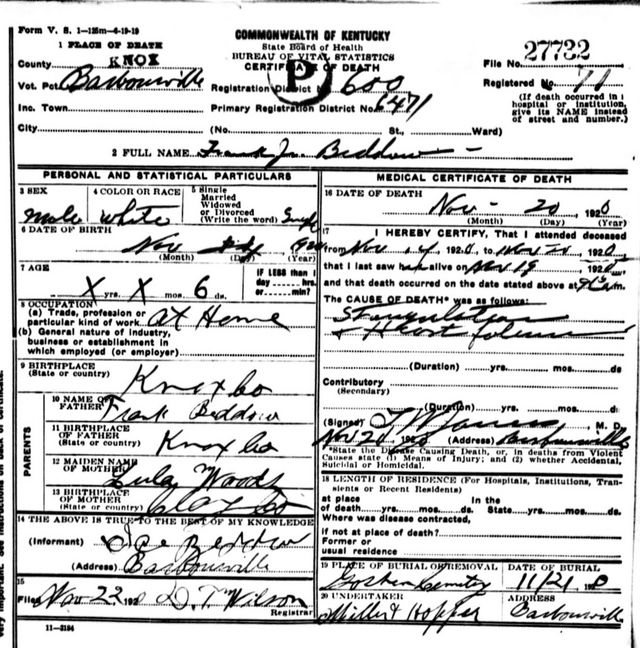 Form V. S. 1—125m—6-19-19
COMMONWEALTH OF KENTUCKY
State Board of Health
BUREAU OF VITAL STATISTICS
CERTIFICATE OF DEATH
P
1 PLACE OF DEATH
County KNOX
Vot. Pct. Barbourville
Inc. Town
City (No. St., Ward)
File No. 27732
Registered No. 71
(If death occurred in a hospital or institution, give its NAME instead of street and number.)
Registration District No. 600
Primary Registration District No. 6471
2 FULL NAME Frank Jr. Beddow
PERSONAL AND STATISTICAL PARTICULARS
3 SEX Male
4 COLOR OR RACE white
5 Single Married Widowed or Divorced (Write the word) Single
6 DATE OF BIRTH Nov
(Month) (Day) (Year)
7 AGE X yrs. X mos. 6 ds.
IF LESS than 1 day hrs. or min?
8 OCCUPATION
(a) Trade, profession or particular kind of work At Home
(b) General nature of industry, business or establishment in which employed (or employer)
9 BIRTHPLACE (State or country) Knox Co
PARENTS
10 NAME OF FATHER Frank Beddow
11 BIRTHPLACE OF FATHER (State or country) Knox Co
12 MAIDEN NAME OF MOTHER Lula Woods
13 BIRTHPLACE OF MOTHER (State or country) Clay Co
14 THE ABOVE IS TRUE TO THE BEST OF MY KNOWLEDGE
(Informant) Beddow
(Address) Barbourville
15
Filed Nov 22 1920 D. T. Wilson
Registrar
11—3184
MEDICAL CERTIFICATE OF DEATH
16 DATE OF DEATH
Nov - 20 1920
(Month) (Day) (Year)
17 I HEREBY CERTIFY, That I attended deceased
from Nov 1920 to Nov 20 1920
that I last saw h alive on Nov 19 1920
and that death occurred on the date stated above at m.
The CAUSE OF DEATH* was as follows:
Strangulation
& Heart failure
(Duration) yrs. mos. ds
Contributory
(Secondary)
(Duration) yrs. mos. ds
(Signed) M. D.
Nov 20 1920 (Address) Barbourville
*State the Disease Causing Death, or, in deaths from Violent Causes state (1) Means of Injury; and (2) whether Accidental, Suicidal or Homicidal.
18 LENGTH OF RESIDENCE (For Hospitals, Institutions, Transients or Recent Residents)
at place of death yrs. mos. ds. In the State yrs. mos. ds
Where was disease contracted, if not at place of death?
Former or usual residence
19 PLACE OF BURIAL OR REMOVAL Goshen Cemetery
DATE OF BURIAL 11/21 1920
20 UNDERTAKER Miller & Hopper
ADDRESS Barbourville